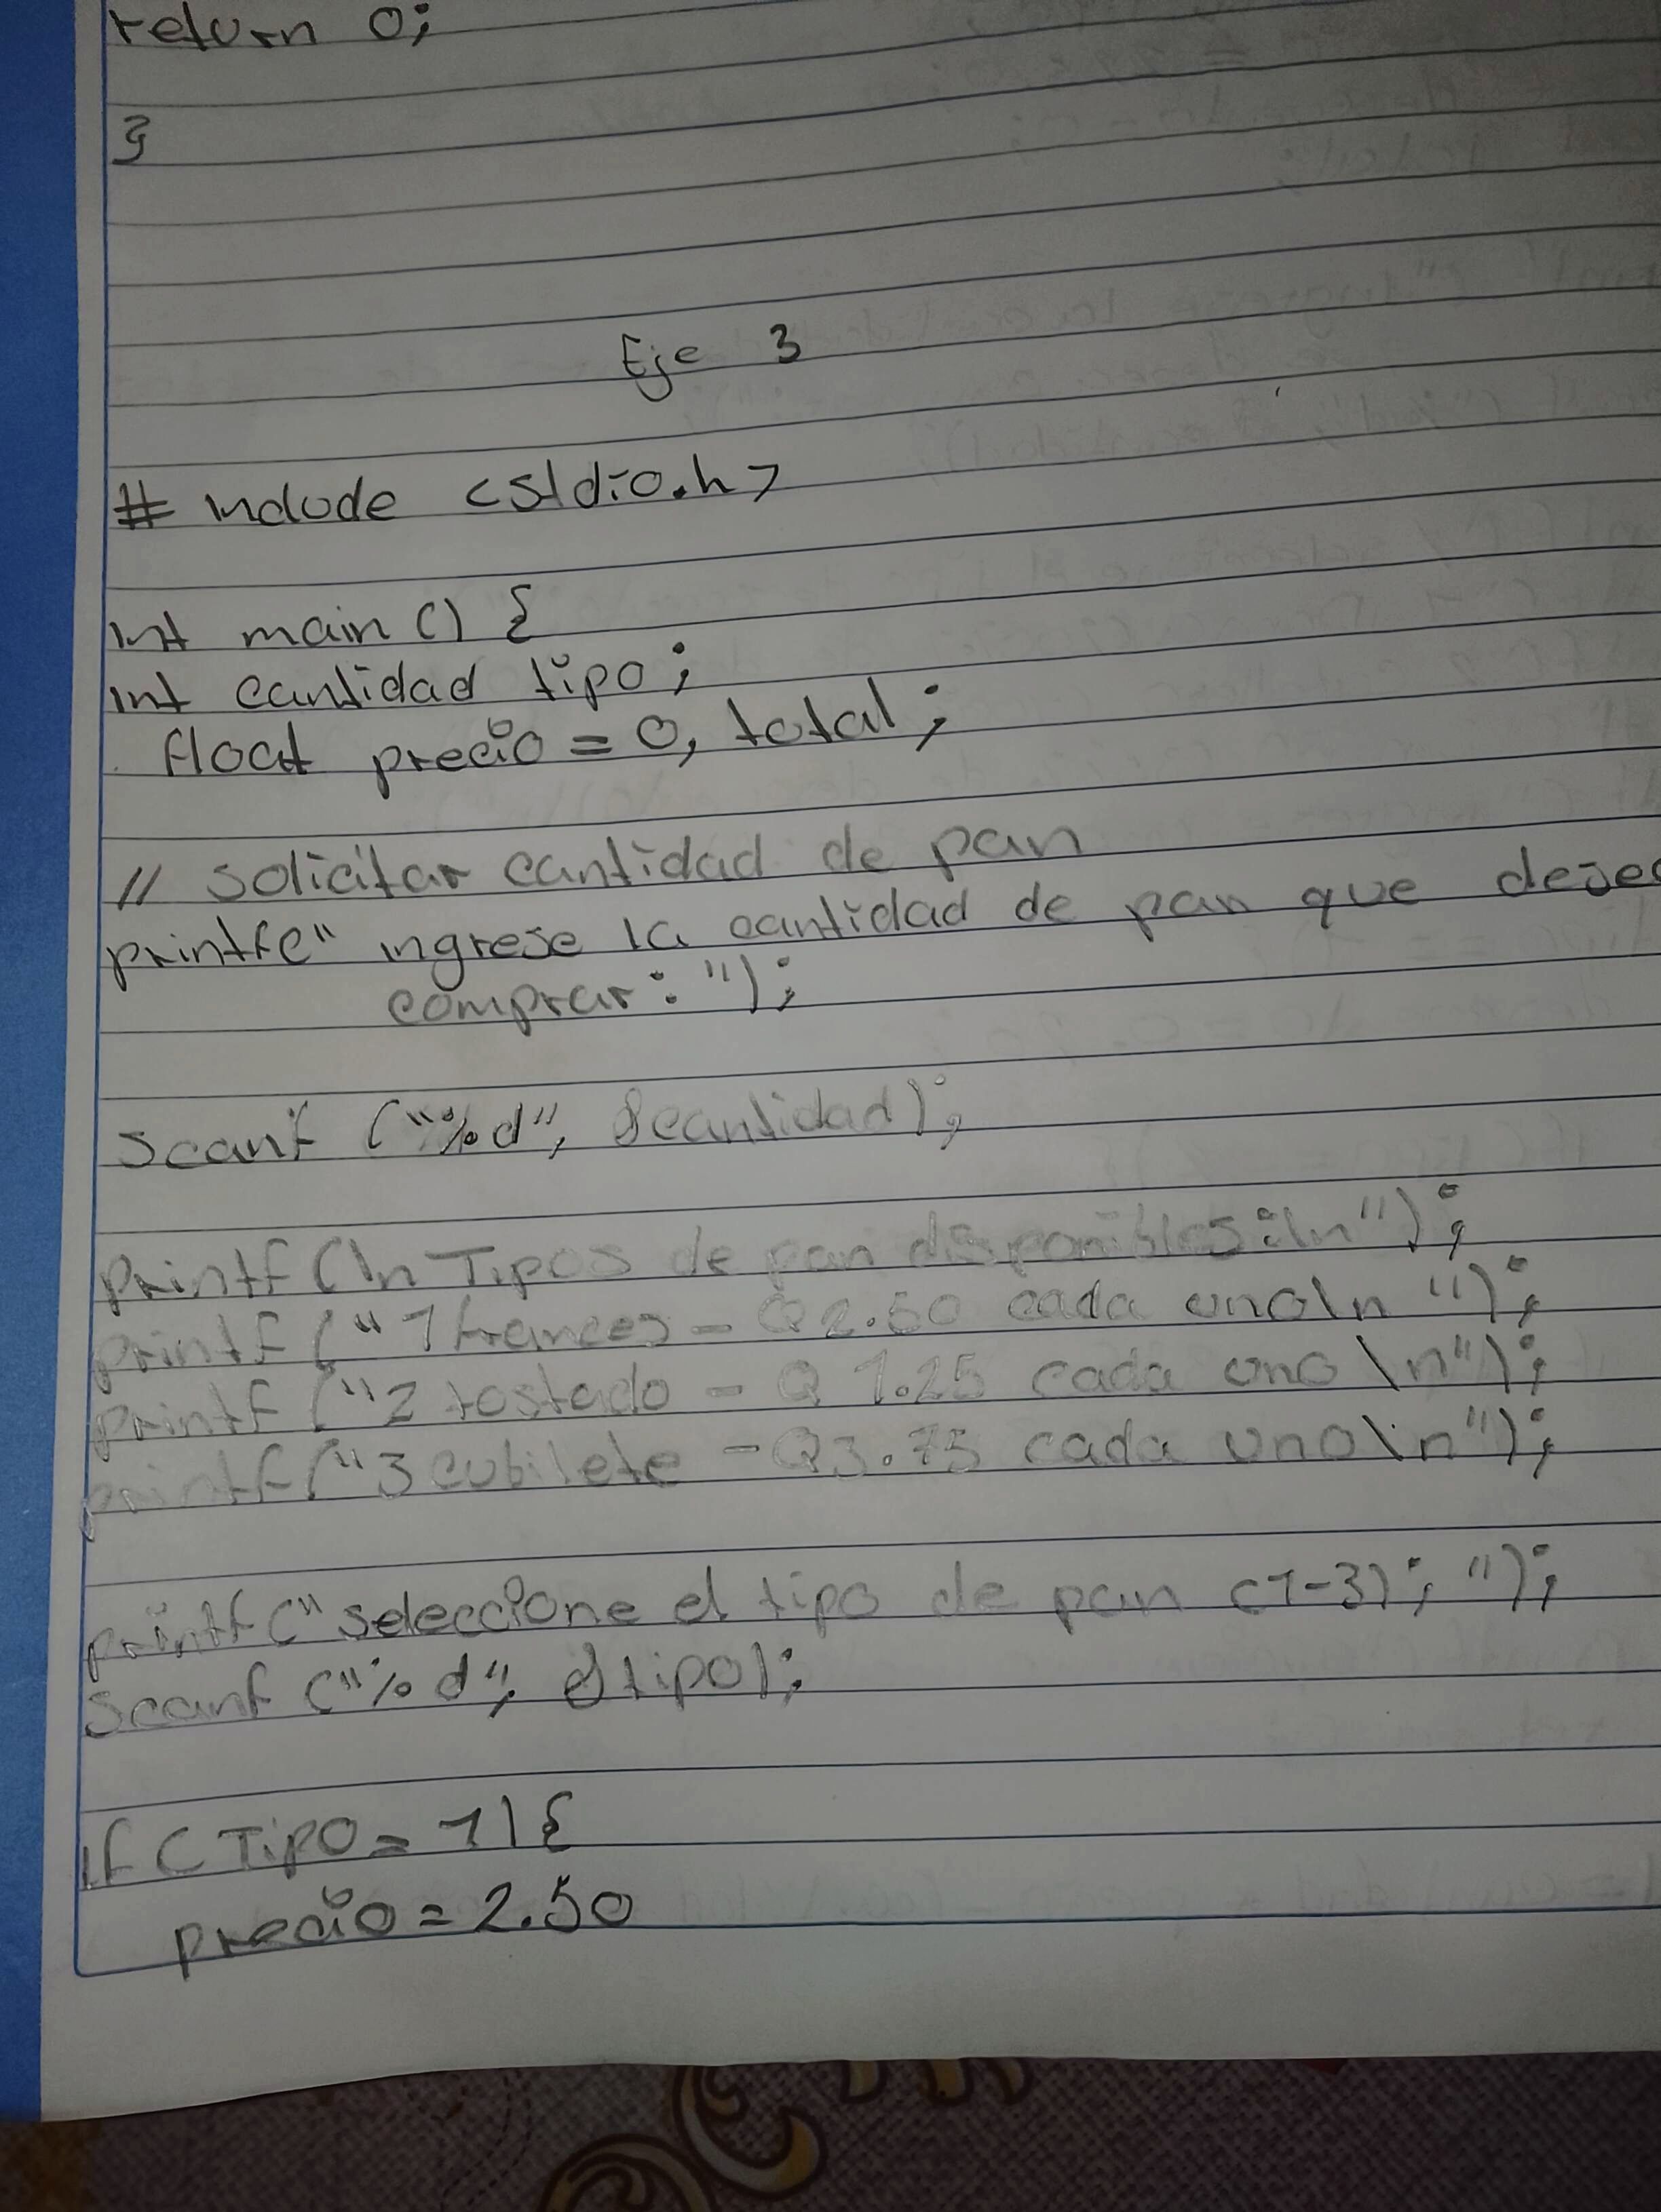 return 0;
}
Eje 3
# include <stdio.h>
int main () {
int cantidad tipo;
float precio = 0, total;
// solicitar cantidad de pan
printf(" ingrese la cantidad de pan que desea
comprar: ");
scanf ("%d", &cantidad);
printf (\n Tipos de pan disponibles:\n");
printf ("1 frances - Q2.50 cada uno\n ");
printf ("2 tostado - Q 1.25 cada uno \n");
printf ("3 cubilete - Q3.75 cada uno\n");
printf (" seleccione el tipo de pan (1-3); ");
scanf ("%d", &tipo);
if ( Tipo = 1) {
precio = 2.50